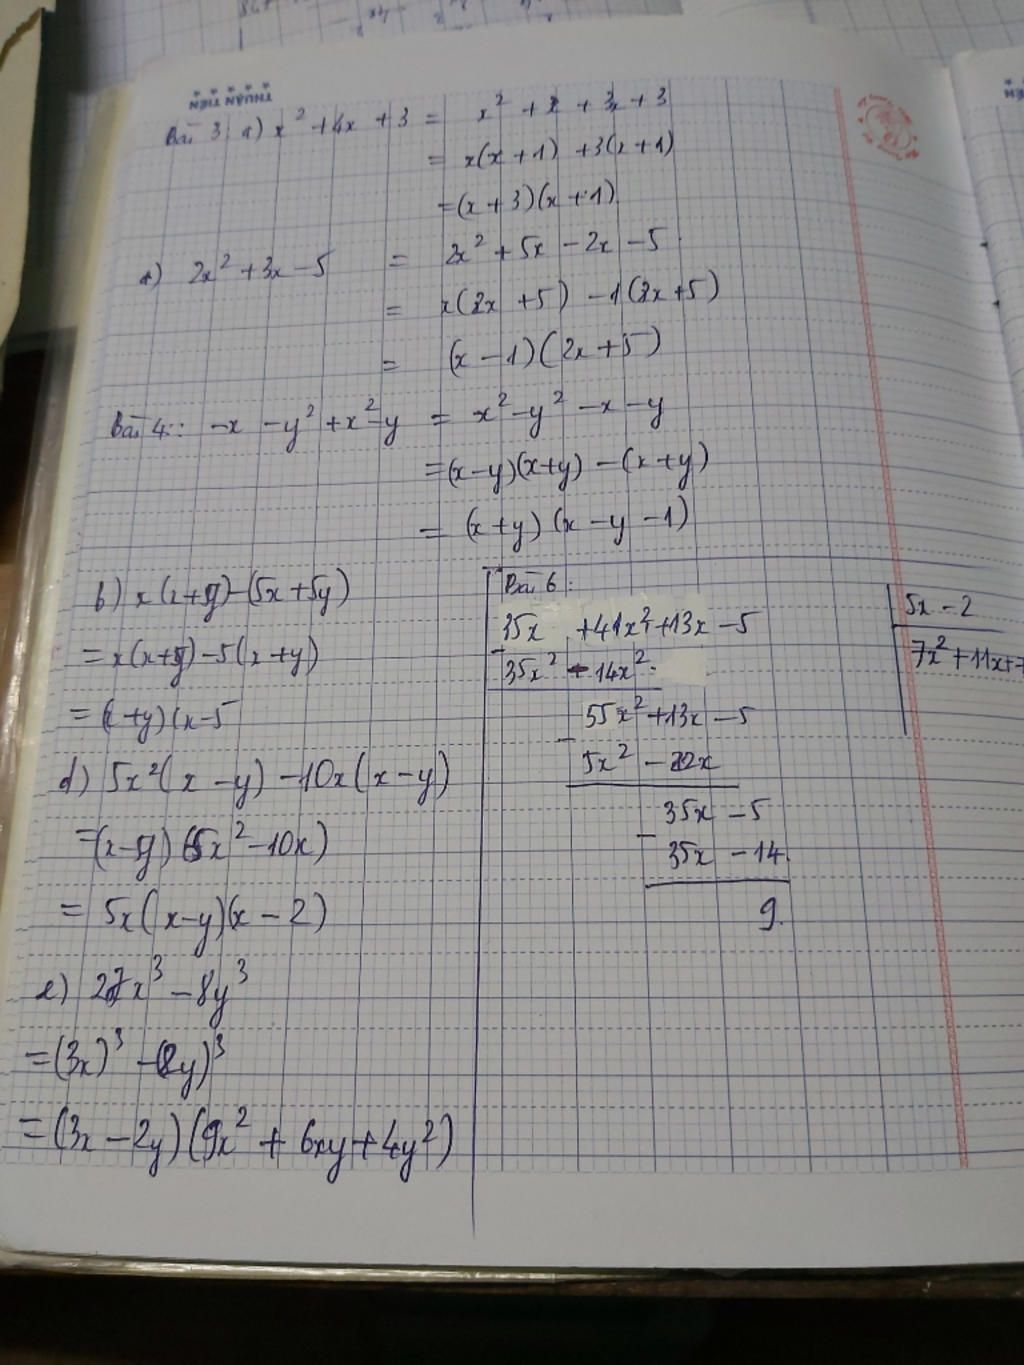 THUẬN TIẾN
Bài 3 a) x² + 4x + 3 = x² + x + 3x + 3
= x(x + 1) + 3(x + 1)
= (x + 3)(x + 1)
2x² + 3x - 5 = 2x² + 5x - 2x - 5
= x(2x + 5) - 1(2x + 5)
= (x - 1)(2x + 5)
Bài 4: -x - y² + x² - y = x² - y² - x - y
= (x - y)(x + y) - (x + y)
= (x + y)(x - y - 1)
b) x(x + y) - (5x + 5y)
= x(x + y) - 5(x + y)
= (x + y)(x - 5
d) 5x²(x - y) - 10x(x - y)
= (x - y)(5x² - 10x)
= 5x(x - y)(x - 2)
e) 27x³ - 8y³
= (3x)³ - (2y)³
= (3x - 2y)(9x² + 6xy + 4y²)
Bài 6:
35x + 41x² + 13x - 5 | 5x - 2
35x² - 14x² | 7x² + 11x + 7
55x² + 13x - 5
- 5x² - 22x
35x - 5
- 35x - 14
9.